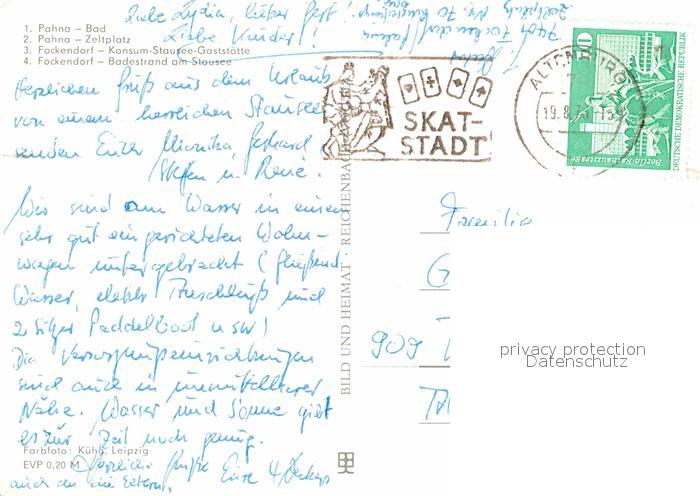 1. Pahna – Bad
2. Pahna – Zeltplatz
3. Fockendorf – Konsum-Stausee-Gaststätte
4. Fockendorf – Badestrand am Stausee
Liebe Lydia, lieber
Liebe Kinder!
Herzlichen Gruß aus dem Urlaub
von einem herrlichen Stausee
senden Euch Monika, Gerhard
Steffen u. René.
Wir sind am Wasser in einem
sehr gut eingerichteten Wohn-
wagen untergebracht (fließend
Wasser, elektr. Anschluß und
2 sitzer Paddelboot usw.)
Die Versorgungseinrichtungen
sind auch in unmittelbarer
Nähe. Wasser und Sonne gibt
es zur Zeit noch genug.
Herzliche Grüße Eure 4
auch an die Eltern.
Farbfoto: Kühn, Leipzig
EVP 0,20 M
BILD UND HEIMAT · REICHENBACH
SKAT-
STADT
ALTENBURG
19.8.
10
Berlin-Rathausstraße
DEUTSCHE DEMOKRATISCHE REPUBLIK
Familie
G
909
privacy protection
Datenschutz